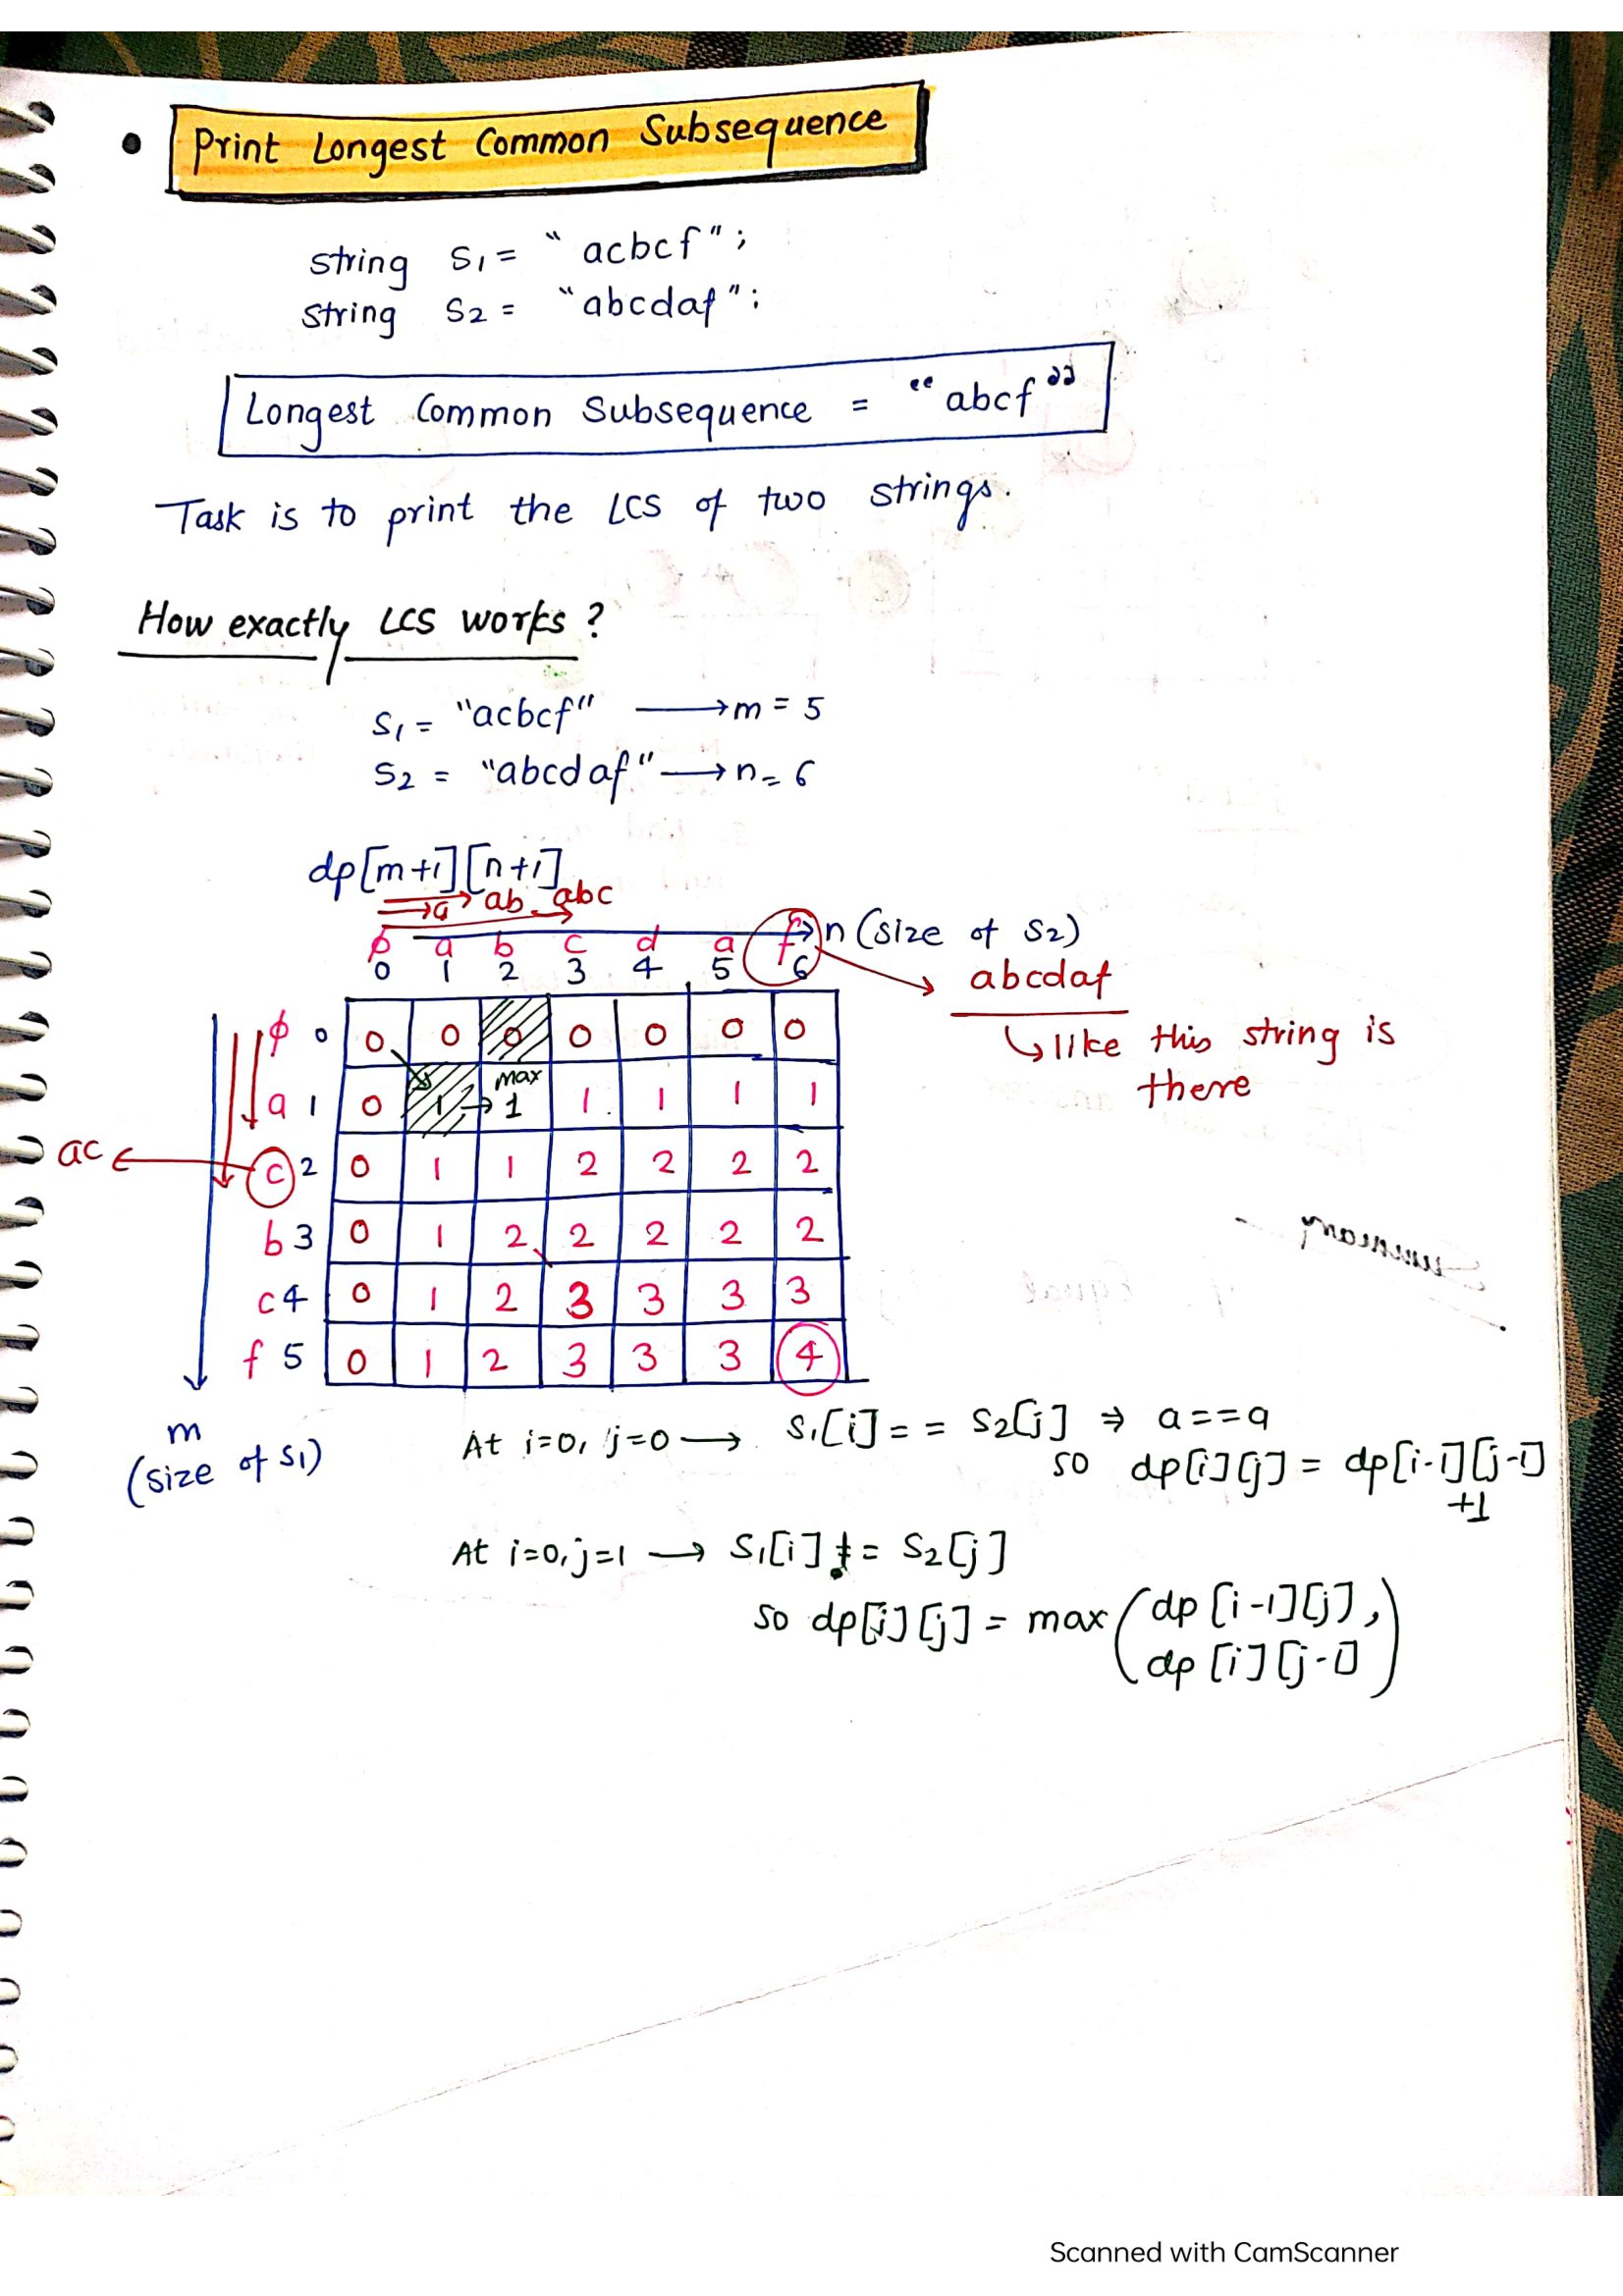 • Print Longest Common Subsequence
string S1 = "acbcf";
string S2 = "abcdaf";
Longest Common Subsequence = "abcf"
Task is to print the LCS of two strings.
How exactly LCS works?
S1 = "acbcf" → m = 5
S2 = "abcdaf" → n = 6
dp[m+1][n+1]
a ab abc
ϕ a b c d a f n (size of S2)
0 1 2 3 4 5 6
abcdaf
↳ like this string is
there
ϕ 0 0 0 0 0 0 0 0
max
a 1 0 1 → 1 1 1 1 1
ac ← c 2 0 1 1 2 2 2 2
b 3 0 1 2 2 2 2 2
c 4 0 1 2 3 3 3 3
f 5 0 1 2 3 3 3 4
m
(size of S1)
At i=0, j=0 → S1[i] == S2[j] ⇒ a==a
so dp[i][j] = dp[i-1][j-1]
+1
At i=0, j=1 → S1[i] != S2[j]
so dp[i][j] = max(dp[i-1][j],
dp[i][j-1])
Scanned with CamScanner